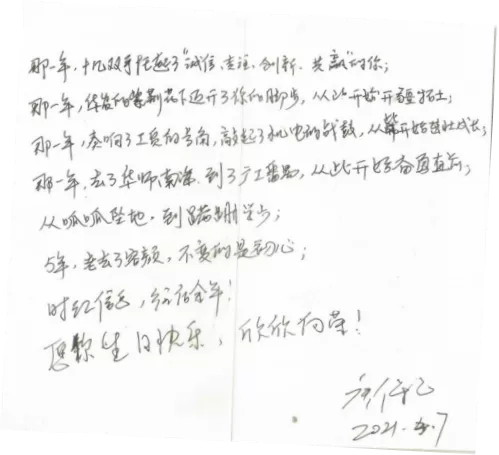 那一年,十几双手托起了“诚信、专注、创新、共赢”的你;
那一年,华发的紫荆花下迈开了你的脚步,从此开始开疆拓土;
那一年,奏响了工贸的号角,敲起了机电的战鼓,从此开始茁壮成长;
那一年,去了华师南海,到了广工番禺,从此开始奋勇直前;
从呱呱坠地,到蹒跚学步;
5年,老去了容颜,不变的是初心;
时红信,余年!
您生日快乐,欣欣向荣!
2021.4.7